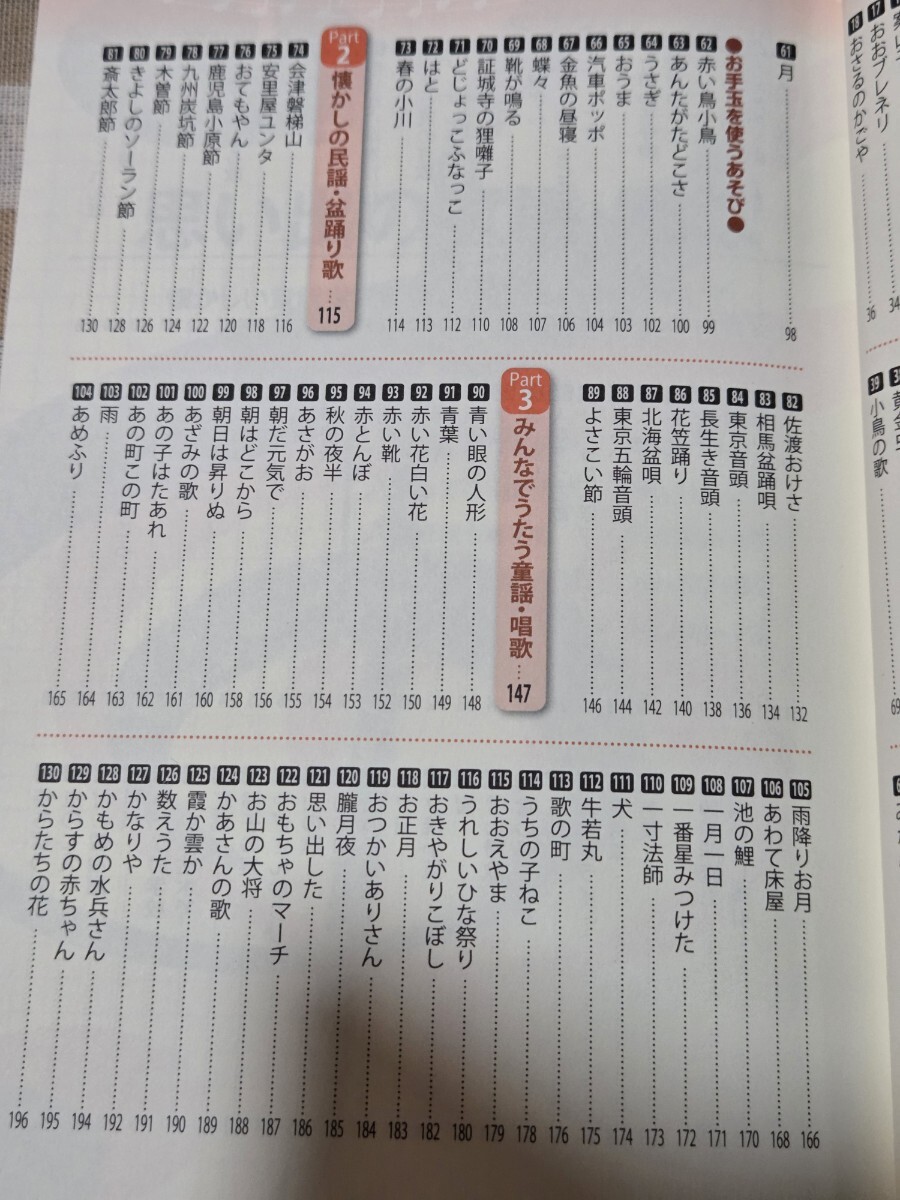 17 おおブレネリ
18 おさるのかごや 36
34
39 小鳥の歌
69
61 月 98
●お手玉を使うあそび●
62 赤い鳥小鳥 99
63 あんたがたどこさ 100
64 うさぎ 102
65 おうま 103
66 汽車ポッポ 104
67 金魚の昼寝 106
68 蝶々 107
69 靴が鳴る 108
70 証城寺の狸囃子 110
71 どじょっこふなっこ 112
72 はと 113
73 春の小川 114
Part 2 懐かしの民謡・盆踊り歌 … 115
74 会津磐梯山 116
75 安里屋ユンタ 118
76 おてもやん 120
77 鹿児島小原節 122
78 九州炭坑節 124
79 木曽節 126
80 きよしのソーラン節 128
81 斎太郎節 130
82 佐渡おけさ 132
83 相馬盆踊唄 134
84 東京音頭 136
85 長生き音頭 138
86 花笠踊り 140
87 北海盆唄 142
88 東京五輪音頭 144
89 よさこい節 146
Part 3 みんなでうたう童謡・唱歌 … 147
90 青い眼の人形 148
91 青葉 149
92 赤い花白い花 150
93 赤い靴 152
94 赤とんぼ 153
95 秋の夜半 154
96 あさがお 155
97 朝だ元気で 156
98 朝はどこから 158
99 朝日は昇りぬ 159
100 あざみの歌 160
101 あの子はたあれ 161
102 あの町この町 162
103 雨 163
104 あめふり 164
165
105 雨降りお月 166
106 あわて床屋 168
107 池の鯉 170
108 一月一日 171
109 一番星みつけた 172
110 一寸法師 173
111 犬 174
112 牛若丸 175
113 歌の町 176
114 うちの子ねこ 178
115 おおえやま 179
116 うれしいひな祭り 180
117 おきやがりこぼし 182
118 お正月 183
119 おつかいありさん 184
120 朧月夜 185
121 思い出した 186
122 おもちゃのマーチ 187
123 お山の大将 188
124 かあさんの歌 189
125 霞か雲か 190
126 数えうた 191
127 かなりや 192
128 かもめの水兵さん 194
129 からすの赤ちゃん 195
130 からたちの花 196